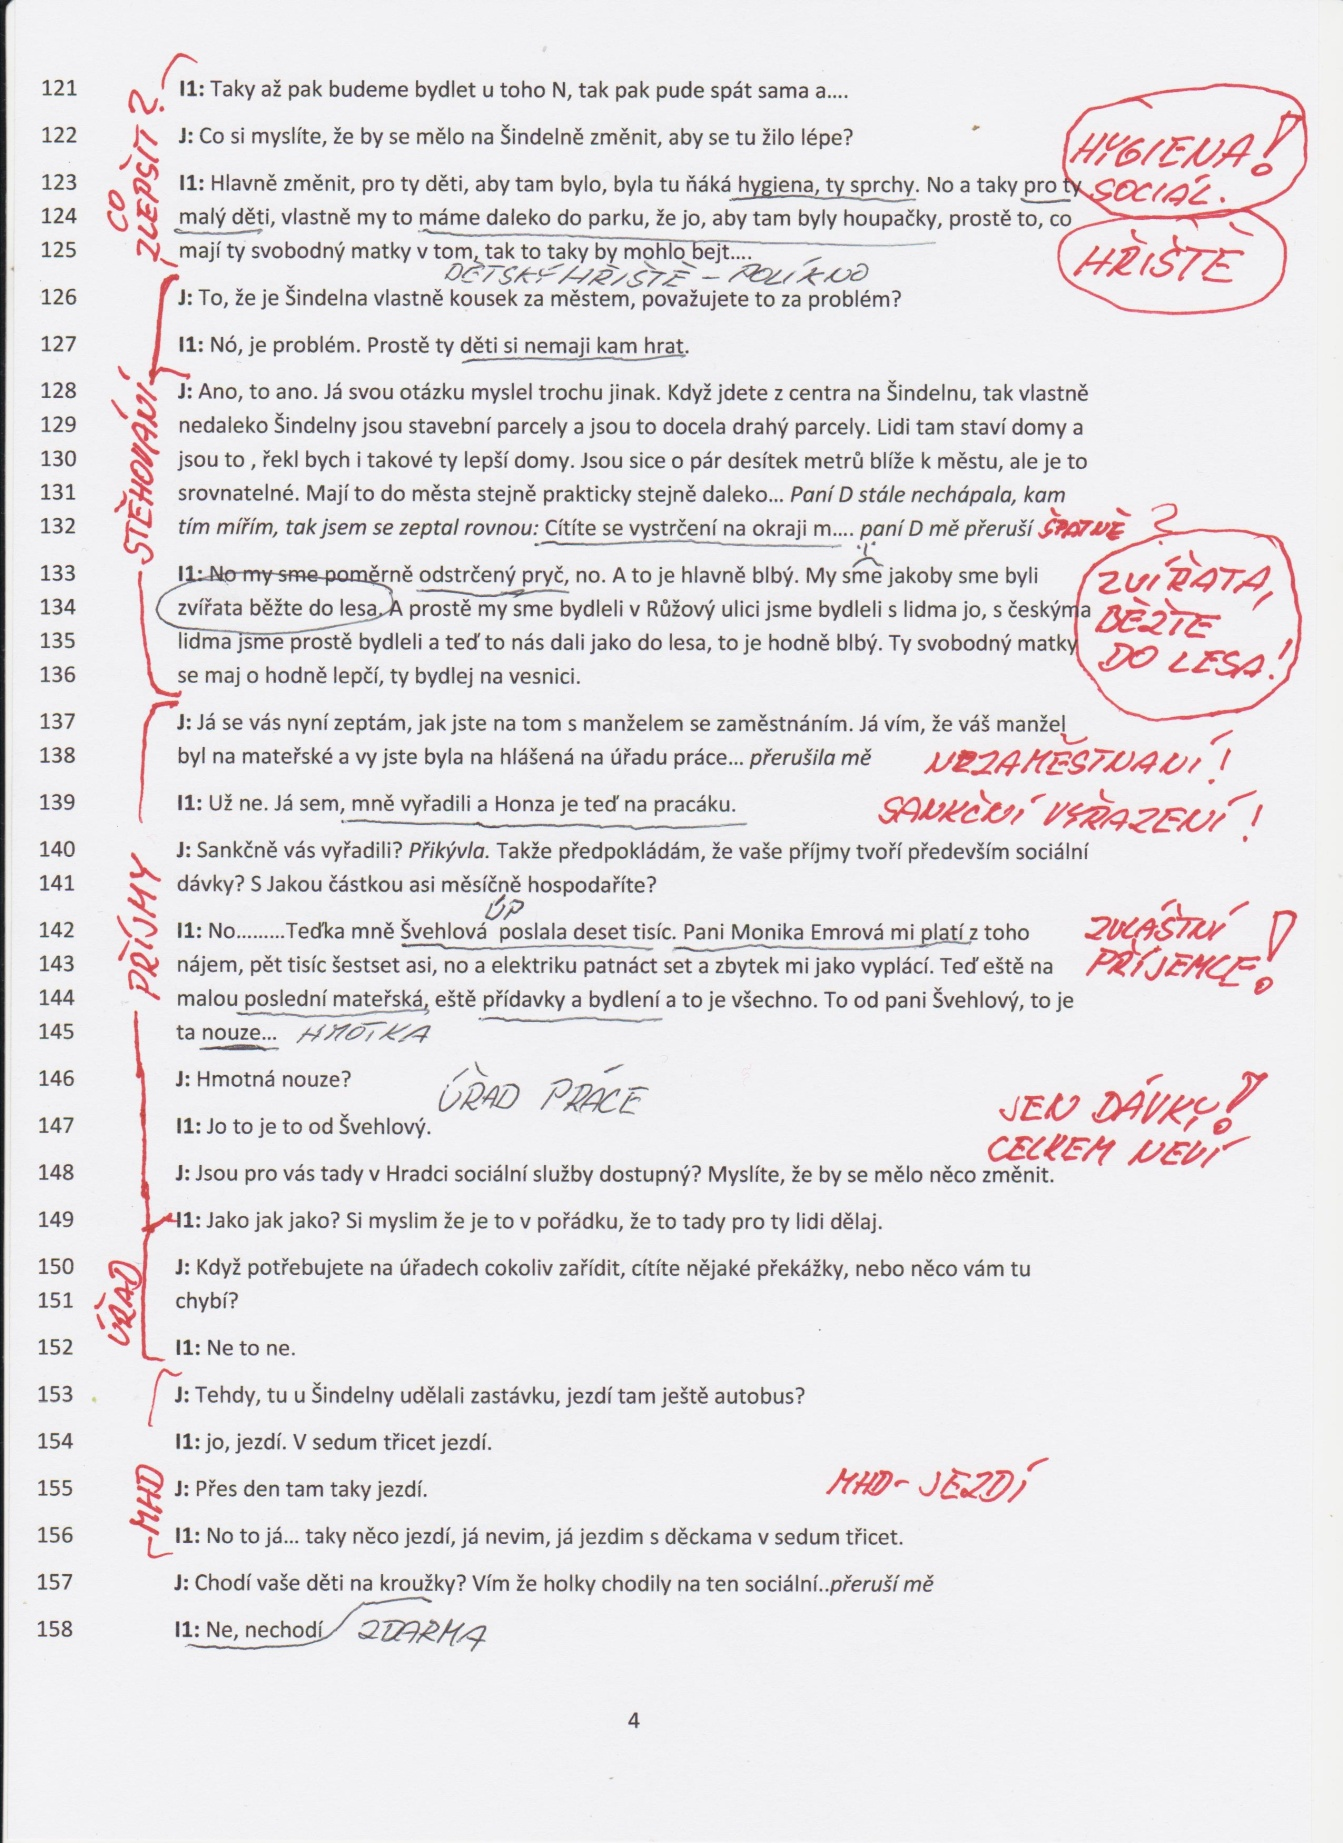 121 I1: Taky až pak budeme bydlet u toho N, tak pak pude spát sama a....
122 J: Co si myslíte, že by se mělo na Šindelně změnit, aby se tu žilo lépe?
CO ZLEPŠIT?
HYGIENA!
SOCIÁL.
123 I1: Hlavně změnit, pro ty děti, aby tam bylo, byla tu ňáká hygiena, ty sprchy. No a taky pro ty
124 malý děti, vlastně my to máme daleko do parku, že jo, aby tam byly houpačky, prostě to, co
125 mají ty svobodný matky v tom, tak to taky by mohlo bejt....
HŘIŠTĚ
DĚTSKÝ HŘIŠTĚ – POLÍKNO
126 J: To, že je Šindelna vlastně kousek za městem, považujete to za problém?
127 I1: Nó, je problém. Prostě ty děti si nemaji kam hrat.
STĚHOVÁNÍ
128 J: Ano, to ano. Já svou otázku myslel trochu jinak. Když jdete z centra na Šindelnu, tak vlastně
129 nedaleko Šindelny jsou stavební parcely a jsou to docela drahý parcely. Lidi tam staví domy a
130 jsou to , řekl bych i takové ty lepší domy. Jsou sice o pár desítek metrů blíže k městu, ale je to
131 srovnatelné. Mají to do města stejně prakticky stejně daleko... Paní D stále nechápala, kam
132 tím mířím, tak jsem se zeptal rovnou: Cítíte se vystrčení na okraji m.... paní D mě přeruší ŠPATNĚ ?
133 I1: No my sme poměrně odstrčený pryč, no. A to je hlavně blbý. My sme jakoby sme byli
134 zvířata běžte do lesa. A prostě my sme bydleli v Růžový ulici jsme bydleli s lidma jo, s českýma
135 lidma jsme prostě bydleli a teď to nás dali jako do lesa, to je hodně blbý. Ty svobodný matky
136 se maj o hodně lepčí, ty bydlej na vesnici.
ZVÍŘATA,
BĚŽTE
DO LESA!
137 J: Já se vás nyní zeptám, jak jste na tom s manželem se zaměstnáním. Já vím, že váš manžel
138 byl na mateřské a vy jste byla na hlášená na úřadu práce... přerušila mě
NEZAMĚSTNANÍ!
139 I1: Už ne. Já sem, mně vyřadili a Honza je teď na pracáku.
SANKČNÍ VYŘAZENÍ!
PŘÍJMY
140 J: Sankčně vás vyřadili? Přikývla. Takže předpokládám, že vaše příjmy tvoří především sociální
141 dávky? S Jakou částkou asi měsíčně hospodaříte?
ÚP
142 I1: No.........Teďka mně Švehlová poslala deset tisíc. Pani Monika Emrová mi platí z toho
143 nájem, pět tisíc šestset asi, no a elektriku patnáct set a zbytek mi jako vyplácí. Teď eště na
144 malou poslední mateřská, eště přídavky a bydlení a to je všechno. To od pani Švehlový, to je
145 ta nouze... HMOTKA
ZVLÁŠTNÍ
PŘÍJEMCE!
146 J: Hmotná nouze?
ÚŘAD PRÁCE
147 I1: Jo to je to od Švehlový.
JEN DÁVKY!
CELKEM NEVÍ
148 J: Jsou pro vás tady v Hradci sociální služby dostupný? Myslíte, že by se mělo něco změnit.
149 I1: Jako jak jako? Si myslim že je to v pořádku, že to tady pro ty lidi dělaj.
ÚŘAD
150 J: Když potřebujete na úřadech cokoliv zařídit, cítíte nějaké překážky, nebo něco vám tu
151 chybí?
152 I1: Ne to ne.
153 J: Tehdy, tu u Šindelny udělali zastávku, jezdí tam ještě autobus?
154 I1: jo, jezdí. V sedum třicet jezdí.
MHD
155 J: Přes den tam taky jezdí.
MHD - JEZDÍ
156 I1: No to já... taky něco jezdí, já nevim, já jezdim s děckama v sedum třicet.
157 J: Chodí vaše děti na kroužky? Vím že holky chodily na ten sociální..přeruší mě
158 I1: Ne, nechodí ZDARMA
4